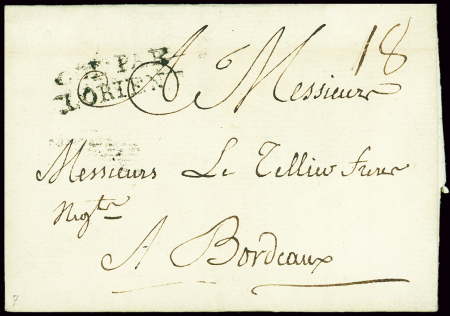 COL. PAR
LORIENT
18
A Messieurs
Messieurs Le Tellier Freres
Negts
A Bordeaux